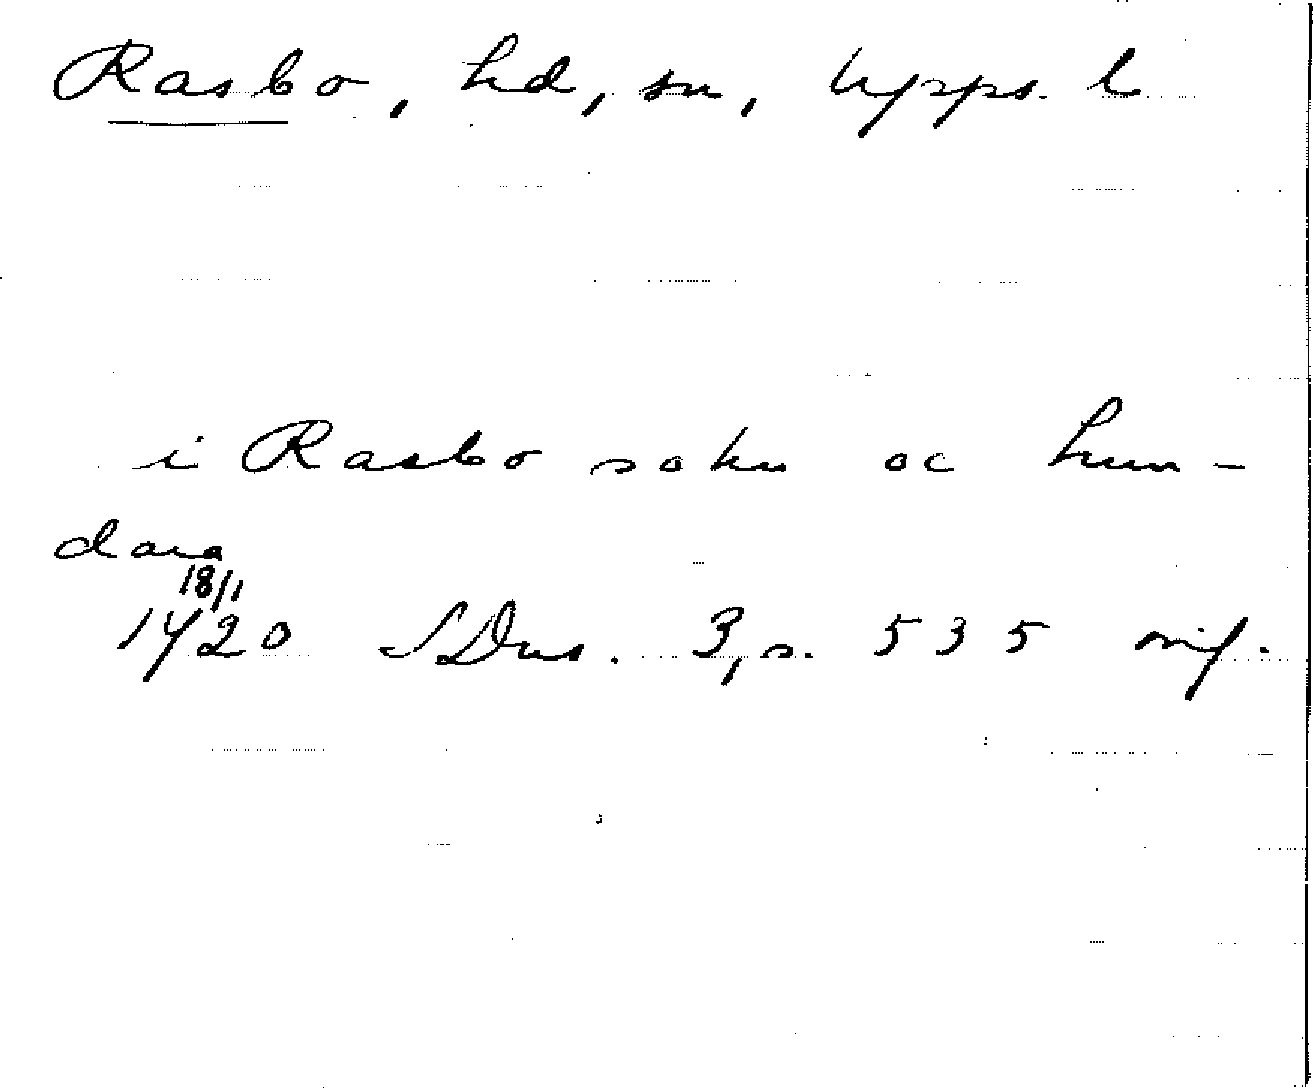 Rasbo, hd, sn, Upps. l
i Rasbo sokn oc hun-
dara
18/1
1420 SDns. 3, s. 535 orig.